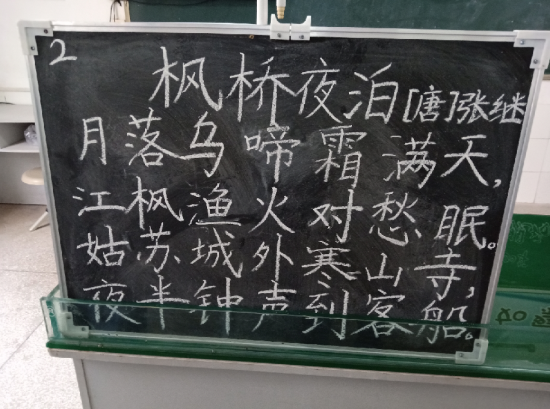 2
枫桥夜泊[唐]张继
月落乌啼霜满天,
江枫渔火对愁眠。
姑苏城外寒山寺,
夜半钟声到客船。